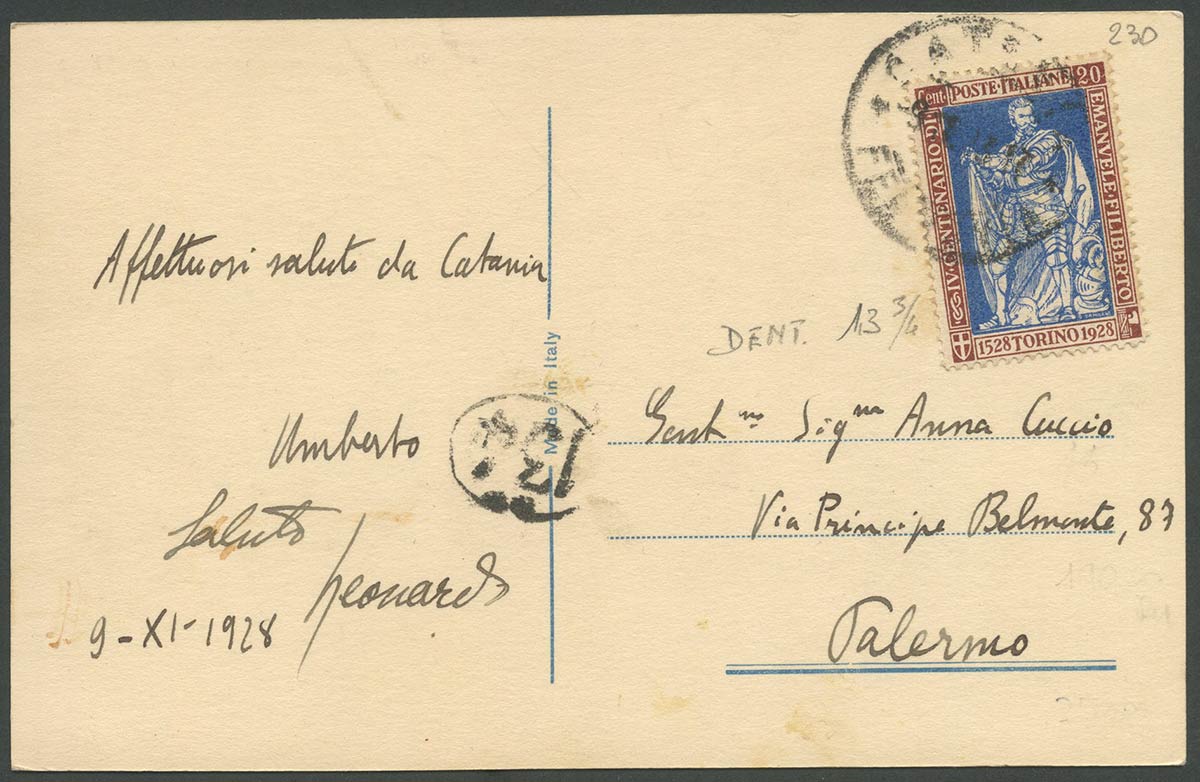 230
Cent. POSTE·ITALIANE 20
IV·CENTENARIO·DI
EMANVELE·FILIBERTO
1528 TORINO 1928
DENT. 13 3/4
Affettuosi saluti da Catania
Umberto
Saluto
Leonardo
9-XI-1928
Made in Italy
Gent ma Sig na Anna Cuccio
Via Principe Belmonte, 87
Palermo